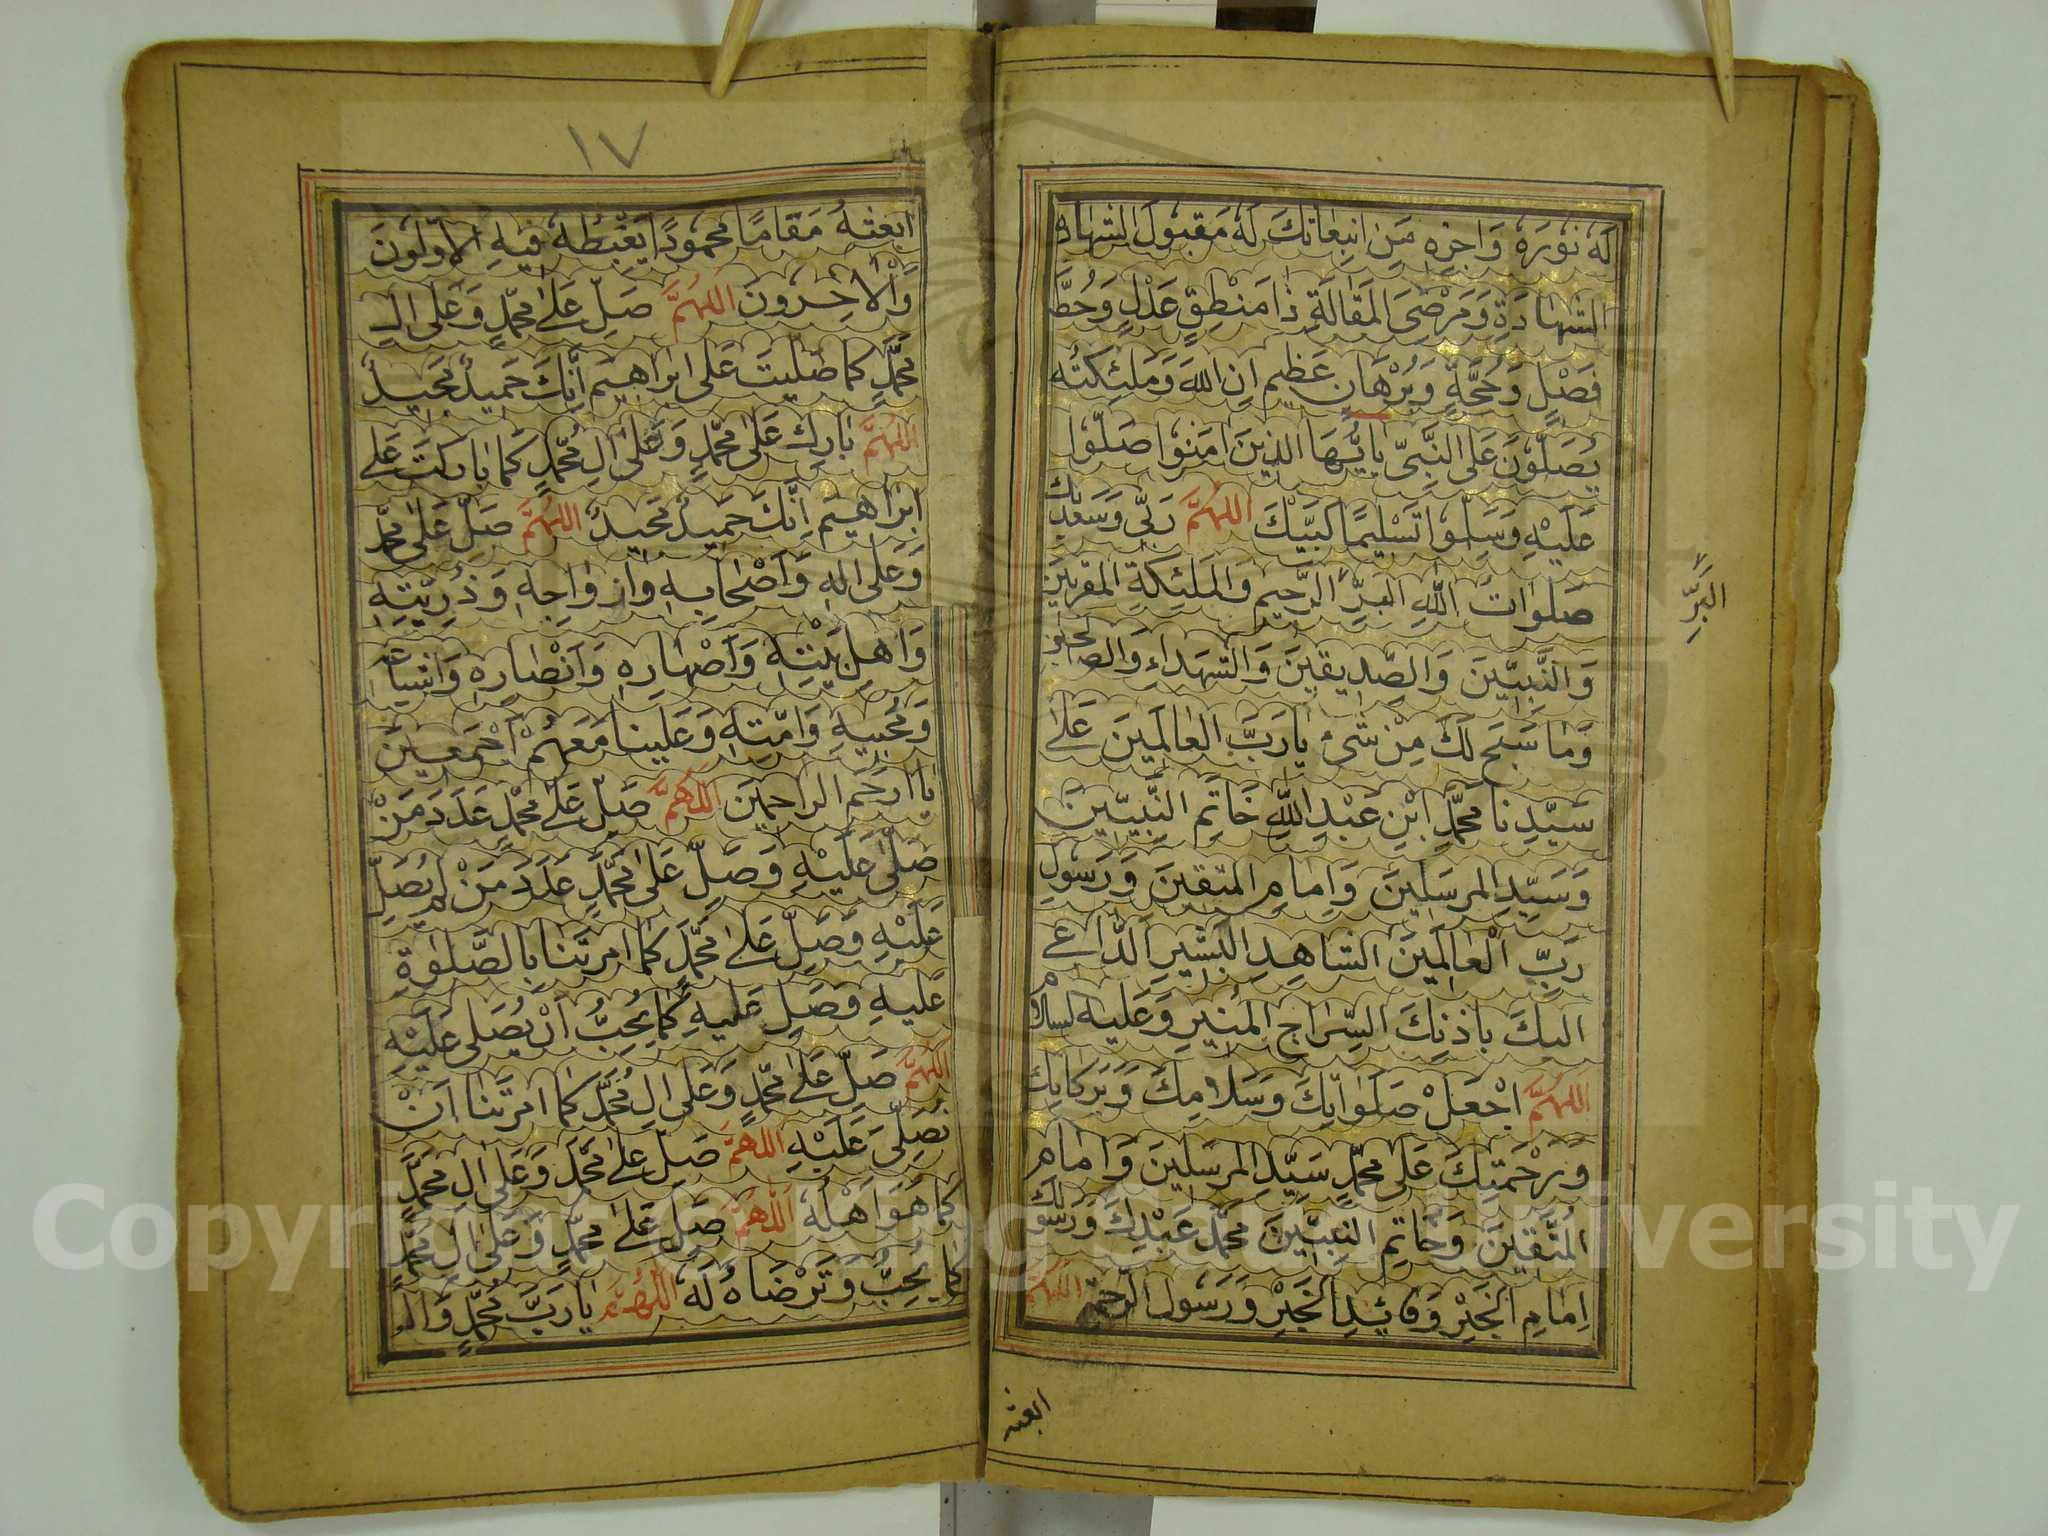 لَهُ نُورَهُ وَاجْزِهِ مِنِ انْبِعَاثِكَ لَهُ مَقْبُولَ الشَّهَادَةِ
الشَّهَادَةِ وَمَرْضِىَ الْمَقَالَةِ ذَا مَنْطِقٍ عَدْلٍ وَخُطَّ
فَصْلٍ وَحُجَّةٍ وَبُرْهَانٍ عَظِيمٍ اِنَّ اللهَ وَمَلٰئِكَتَهُ
يُصَلُّونَ عَلَى النَّبِىِّ يٰاَيُّهَا الَّذِينَ اٰمَنُوا صَلُّوا
عَلَيْهِ وَسَلِّمُوا تَسْلِيمًا لَبَّيْكَ اللّٰهُمَّ رَبِّى وَسَعْدَيْكَ
صَلَوَاتُ اللّٰهِ الْبَرِّ الرَّحِيمِ وَالْمَلٰئِكَةِ الْمُقَرَّبِينَ
الْبَرِّ
وَالنَّبِيِّينَ وَالصِّدِيقِينَ وَالشُّهَدَاءِ وَالصَّالِحِينَ
وَمَا سَبَّحَ لَكَ مِنْ شَىْءٍ يَا رَبَّ الْعَالَمِينَ عَلٰى
سَيِّدِنَا مُحَمَّدِ ابْنِ عَبْدِ اللّٰهِ خَاتِمِ النَّبِيِّينَ
وَسَيِّدِ الْمُرْسَلِينَ وَاِمَامِ الْمُتَّقِينَ وَرَسُولِ
رَبِّ الْعَالَمِينَ الشَّاهِدِ الْبَشِيرِ الدَّاعِى
اِلَيْكَ بِاِذْنِكَ السِّرَاجِ الْمُنِيرِ وَعَلَيْهِ السَّلَامُ
اَللّٰهُمَّ اجْعَلْ صَلَوَاتِكَ وَسَلَامِكَ وَبَرَكَاتِكَ
وَرَحْمَتِكَ عَلٰى مُحَمَّدٍ سَيِّدِ الْمُرْسَلِينَ وَاِمَامِ
الْمُتَّقِينَ وَخَاتِمِ النَّبِيِّينَ مُحَمَّدٍ عَبْدِكَ وَرَسُولِكَ
اِمَامِ الْخَيْرِ وَقَائِدِ الْخَيْرِ وَرَسُولِ الرَّحْمَةِ اَللّٰهُمَّ
ابعثه
١٧
ابْعَثْهُ مَقَامًا مَحْمُودًا يَغْبِطُهُ فِيهِ الْاَوَّلُونَ
وَالْاٰخِرُونَ اَللّٰهُمَّ صَلِّ عَلٰى مُحَمَّدٍ وَعَلٰى اٰلِ
مُحَمَّدٍ كَمَا صَلَّيْتَ عَلٰى اِبْرَاهِيمَ اِنَّكَ حَمِيدٌ مَجِيدٌ
اَللّٰهُمَّ بَارِكْ عَلٰى مُحَمَّدٍ وَعَلٰى اٰلِ مُحَمَّدٍ كَمَا بَارَكْتَ عَلٰى
اِبْرَاهِيمَ اِنَّكَ حَمِيدٌ مَجِيدٌ اَللّٰهُمَّ صَلِّ عَلٰى مُحَمَّدٍ
وَعَلٰى اٰلِهِ وَاَصْحَابِهِ وَاَزْوَاجِهِ وَذُرِّيَّتِهِ
وَاَهْلِ بَيْتِهِ وَاَصْهَارِهِ وَاَنْصَارِهِ وَاَشْيَاعِهِ
وَمُحِبِّيهِ وَاُمَّتِهِ وَعَلَيْنَا مَعَهُمْ اَجْمَعِينَ
يَا اَرْحَمَ الرَّاحِمِينَ اَللّٰهُمَّ صَلِّ عَلٰى مُحَمَّدٍ عَدَدَ مَنْ
صَلّٰى عَلَيْهِ وَصَلِّ عَلٰى مُحَمَّدٍ عَدَدَ مَنْ لَمْ يُصَلِّ
عَلَيْهِ وَصَلِّ عَلٰى مُحَمَّدٍ كَمَا اَمَرْتَنَا بِالصَّلٰوةِ
عَلَيْهِ وَصَلِّ عَلَيْهِ كَمَا يُحِبُّ اَنْ يُصَلّٰى عَلَيْهِ
اَللّٰهُمَّ صَلِّ عَلٰى مُحَمَّدٍ وَعَلٰى اٰلِ مُحَمَّدٍ كَمَا اَمَرْتَنَا اَنْ
نُصَلِّىَ عَلَيْهِ اَللّٰهُمَّ صَلِّ عَلٰى مُحَمَّدٍ وَعَلٰى اٰلِ مُحَمَّدٍ
كَمَا هُوَ اَهْلُهُ اَللّٰهُمَّ صَلِّ عَلٰى مُحَمَّدٍ وَعَلٰى اٰلِ مُحَمَّدٍ
كَمَا يُحِبُّ وَتَرْضَاهُ لَهُ اَللّٰهُمَّ يَا رَبَّ مُحَمَّدٍ وَاٰلِ
Copyright © King Saud University